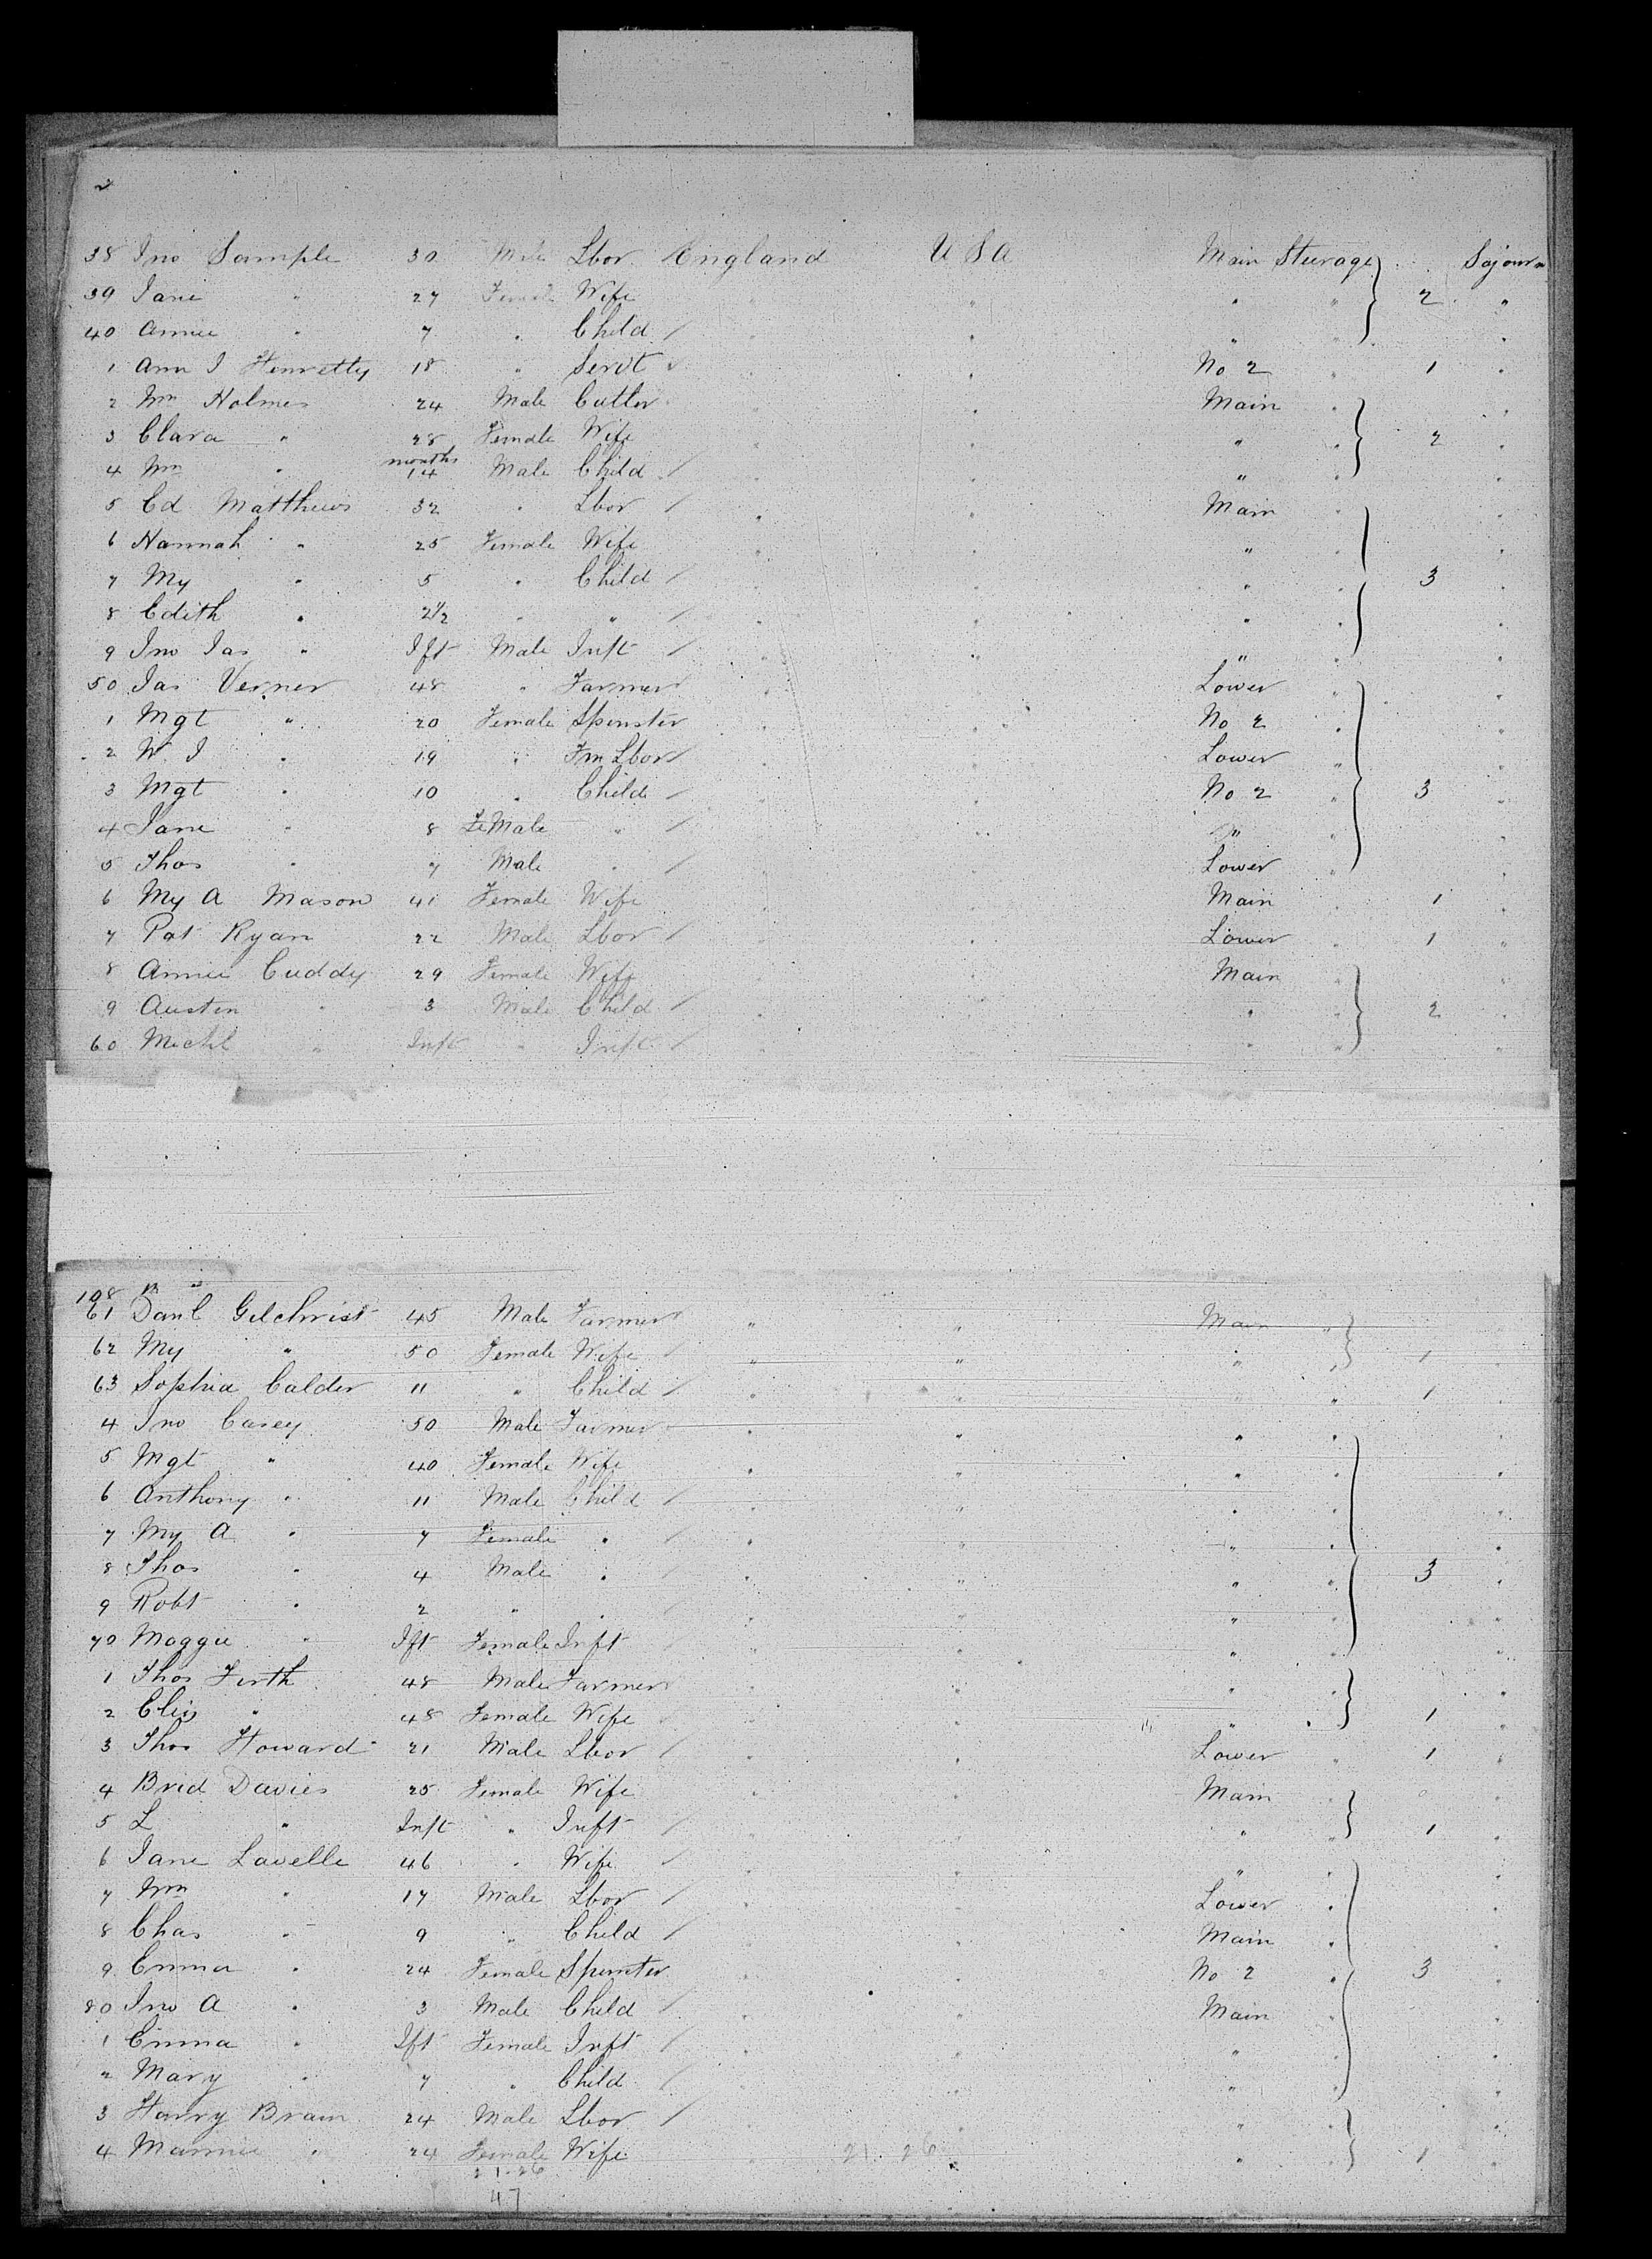 38 Jno Sample 30 Male Lbor England U S A Main Sturage Sojourn
39 Jane " 27 Female Wife " " " " 2 "
40 Annie " 7 " Child / " " " " "
1 Ann J Henretty 18 " Servt " " No 2 " 1 "
2 Wm Holmes 24 Male Cutler " " Main " "
3 Clara " 28 Female Wife " " " " 2 "
4 Wm " months 14 Male Child / " " " " "
5 Ed Matthews 32 " Lbor / " " Main " "
6 Hannah " 25 Female Wife " " " " "
7 My " 5 " Child / " " " " 3 "
8 Edith " 2½ " " / " " " " "
9 Jno Jas " Ift Male Inft / " " " " "
50 Jas Verner 48 " Farmer " " Lower " "
1 Mgt " 20 Female Spinster " " No 2 " "
2 W J " 19 " Fm Lbor / " " Lower " "
3 Mgt " 10 " Child / " " No 2 " 3 "
4 Jane " 8 FeMale " / " " " " "
5 Thos " 7 Male " / " " Lower " "
6 My A Mason 41 Female Wife " " Main " 1 "
7 Pat Ryan 22 Male Lbor / " " Lower " 1 "
8 Annie Cuddy 29 Female Wife " " Main " "
9 Austin " 3 Male Child / " " " " 2 "
60 Michl " Inft " Inft / " " " " "
108
61 Danl Gilchrist 45 Male Farmer " " Main "
62 My " 50 Female Wife / " " " " 1 "
63 Sophia Calder 11 " Child / " " " " 1 "
4 Jno Casey 50 Male Farmer " " " "
5 Mgt " 40 Female Wife " " " " "
6 Anthony " 11 Male Child / " " " " "
7 My A " 7 Female " / " " " " "
8 Thos " 4 Male " / " " " " 3 "
9 Robt " 2 " " / " " " " "
70 Maggie " Ift Female Inft " " " " "
1 Thos Firth 48 Male Farmer " " " "
2 Eliz " 48 Female Wife " " " " 1 "
3 Thos Howard 21 Male Lbor / " " Lower " 1 "
4 Brid Davies 25 Female Wife " " Main " "
5 L " Inft " Inft / " " " " 1 "
6 Jane Lavelle 46 " Wife / " " " " "
7 Wm " 17 Male Lbor / " " Lower " "
8 Chas " 9 " Child / " " Main " "
9 Emma " 24 Female Spinster " " No 2 " 3 "
80 Jno A " 3 Male Child / " " Main " "
1 Emma " Ift Female Inft / " " " " "
2 Mary " 7 " Child / " " " " "
3 Harry Bram 24 Male Lbor / " " " " "
4 Mamie " 24 Female Wife " 21 26 " " " 1 "
21-26
47